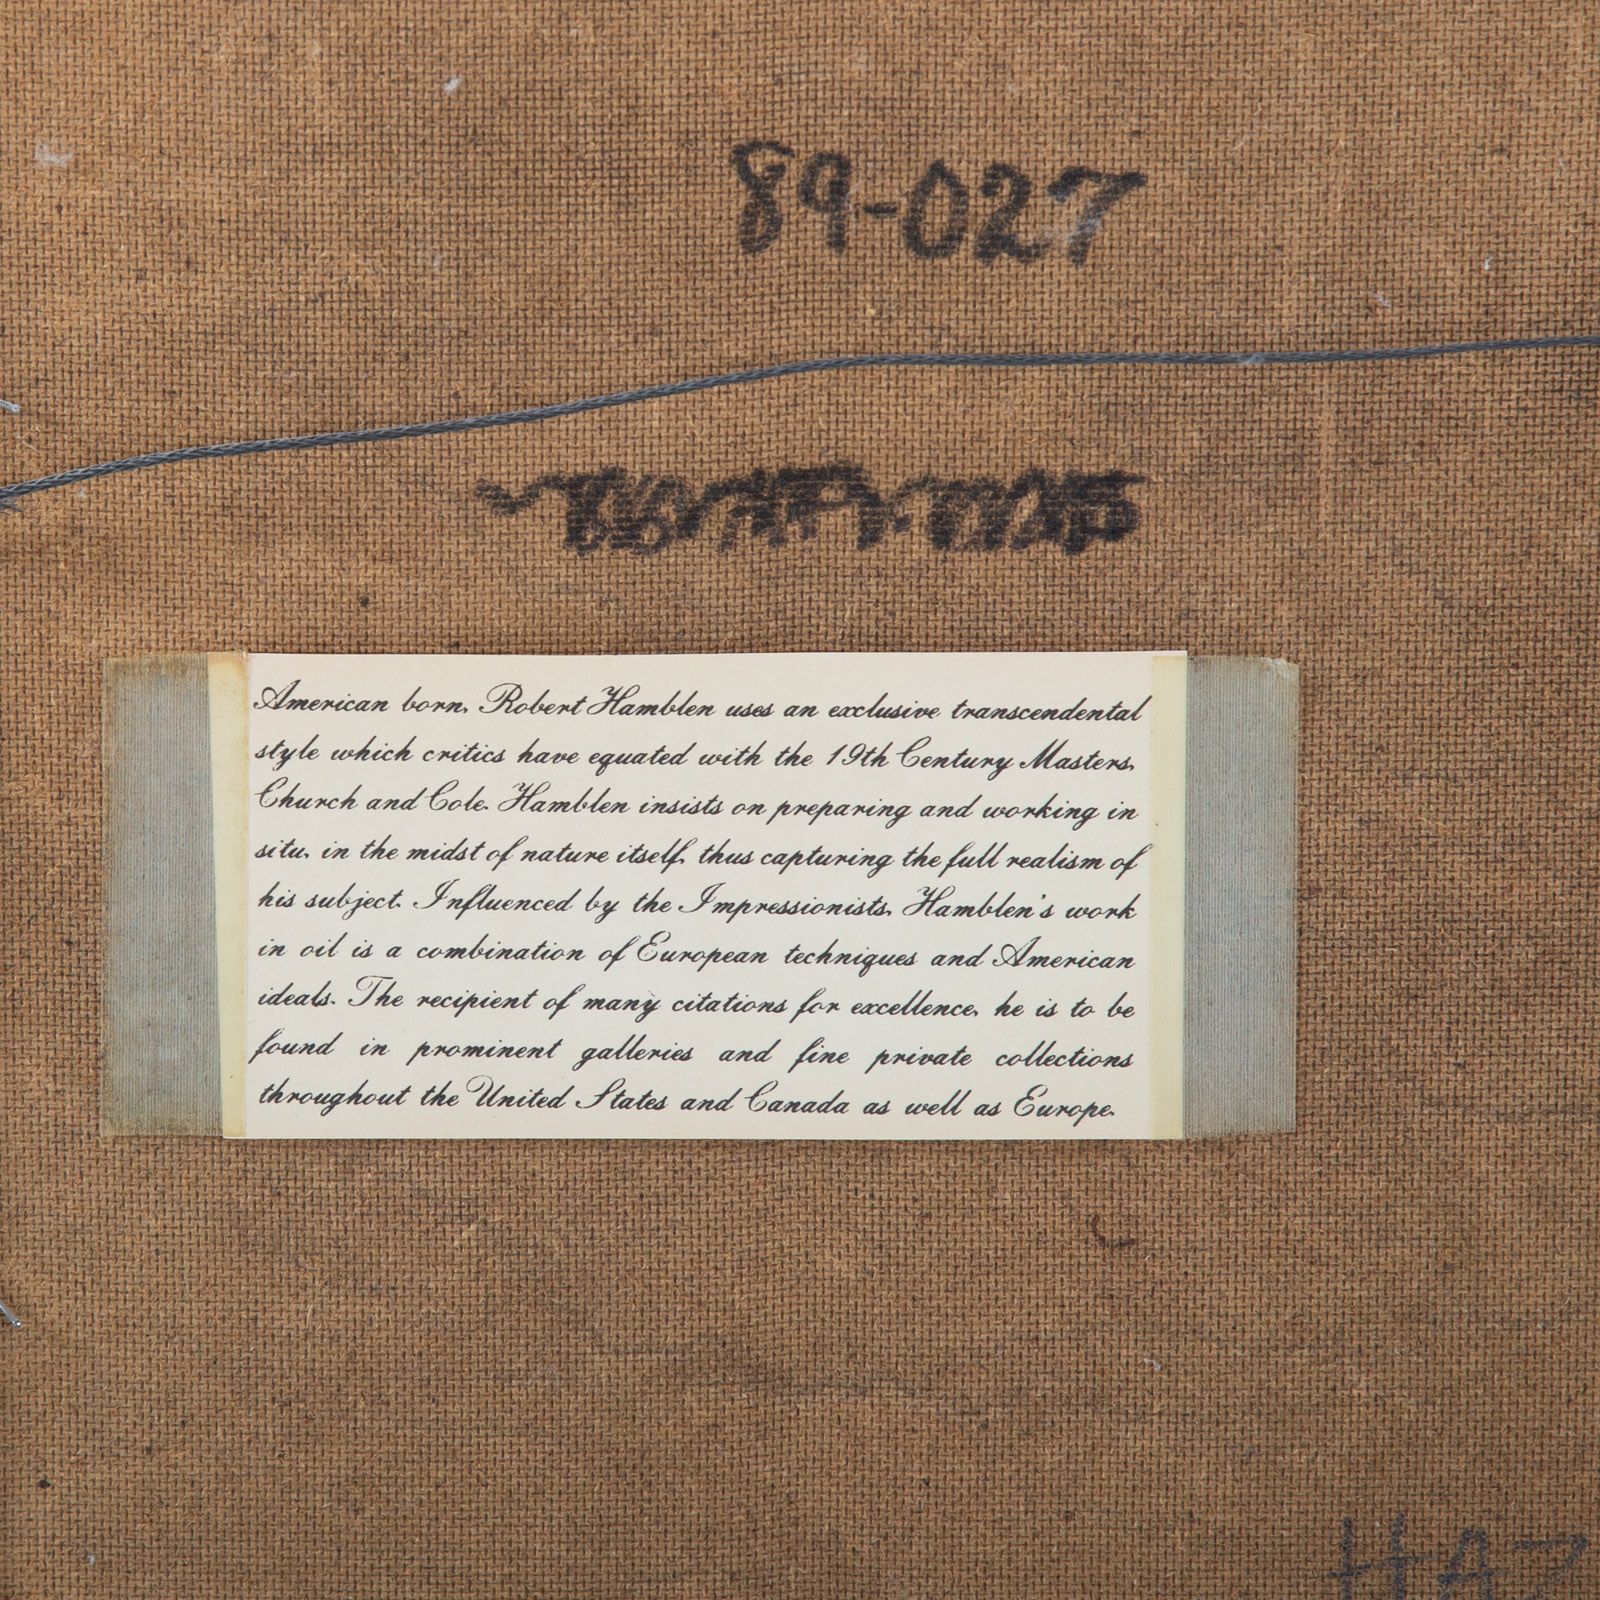 89-027
American born, Robert Hamblen uses an exclusive transcendental
style which critics have equated with the 19th Century Masters,
Church and Cole. Hamblen insists on preparing and working in
situ, in the midst of nature itself, thus capturing the full realism of
his subject. Influenced by the Impressionists, Hamblen's work
in oil is a combination of European techniques and American
ideals. The recipient of many citations for excellence, he is to be
found in prominent galleries and fine private collections
throughout the United States and Canada as well as Europe.